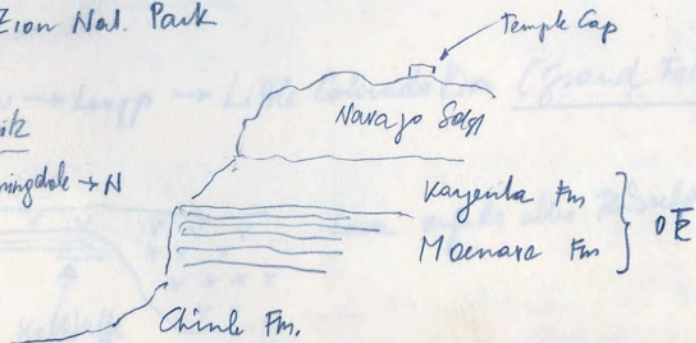 Zion Nat. Park
Temple Cap
Navajo Sdst
→ N
Kayenta Fm
Moenave Fm
Chinle Fm.